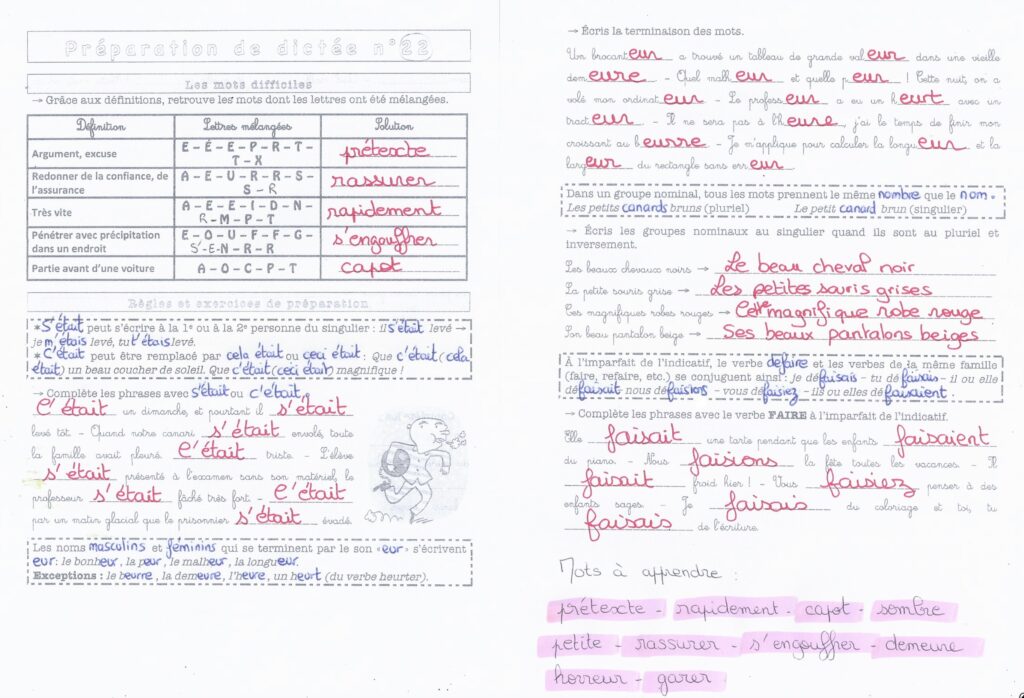 Préparation de dictée n°22
Les mots difficiles
→ Grâce aux définitions, retrouve les mots dont les lettres ont été mélangées.
Définition Lettres mélangées Solution
Argument, excuse E - É - E - P - R - T - T - X prétexte
Redonner de la confiance, de l'assurance A - E - U - R - R - S - S - R rassurer
Très vite A - E - E - I - D - N - R - M - P - T rapidement
Pénétrer avec précipitation dans un endroit E - O - U - F - F - G - S'-E-N - R - R s'engouffrer
Partie avant d'une voiture A - O - C - P - T capot
Règles et exercices de préparation
*S'était peut s'écrire à la 1e ou à la 2e personne du singulier : il s'était levé →
je m'étais levé, tu t'étais levé.
*C'était peut être remplacé par cela était ou ceci était : Que c'était (cela
était) un beau coucher de soleil. Que c'était (ceci était) magnifique !
→ Complète les phrases avec s'était ou c'était.
C'était un dimanche, et pourtant il s'était
levé tôt. - Quand notre canari s'était envolé, toute
la famille avait pleuré. C'était triste. - L'élève
s'était présenté à l'examen sans son matériel, le
professeur s'était fâché très fort. - C'était
par un matin glacial que le prisonnier s'était évadé.
Les noms masculins et féminins qui se terminent par le son «eur» s'écrivent
eur : le bonheur, la peur, le malheur, la longueur.
Exceptions : le beurre, la demeure, l'heure, un heurt (du verbe heurter).
→ Écris la terminaison des mots.
Un brocanteur a trouvé un tableau de grande valeur dans une vieille
demeure - Quel malheur et quelle peur ! Cette nuit, on a
volé mon ordinateur - Le professeur a eu un heurt avec un
tracteur - Il ne sera pas à l'heure, j'ai le temps de finir mon
croissant au beurre - Je m'applique pour calculer la longueur et la
largeur du rectangle sans erreur.
Dans un groupe nominal, tous les mots prennent le même nombre que le nom.
Les petits canards bruns (pluriel) Le petit canard brun (singulier)
→ Écris les groupes nominaux au singulier quand ils sont au pluriel et
inversement.
Les beaux chevaux noirs → Le beau cheval noir
La petite souris grise → Les petites souris grises
Ces magnifiques robes rouges → Cette magnifique robe rouge
Son beau pantalon beige → Ses beaux pantalons beiges
À l'imparfait de l'indicatif, le verbe défaire et les verbes de la même famille
(faire, refaire, etc.) se conjuguent ainsi : je défaisais - tu défaisais - il ou elle
défaisait nous défaisions - vous défaisiez - ils ou elles défaisaient.
→ Complète les phrases avec le verbe FAIRE à l'imparfait de l'indicatif.
Elle faisait une tarte pendant que les enfants faisaient
du piano. - Nous faisions la fête toutes les vacances. - Il
faisait froid hier ! - Vous faisiez penser à des
enfants sages. - Je faisais du coloriage et toi, tu
faisais de l'écriture.
Mots à apprendre :
prétexte - rapidement - capot - sombre
petite - rassurer - s'engouffrer - demeure
horreur - garer